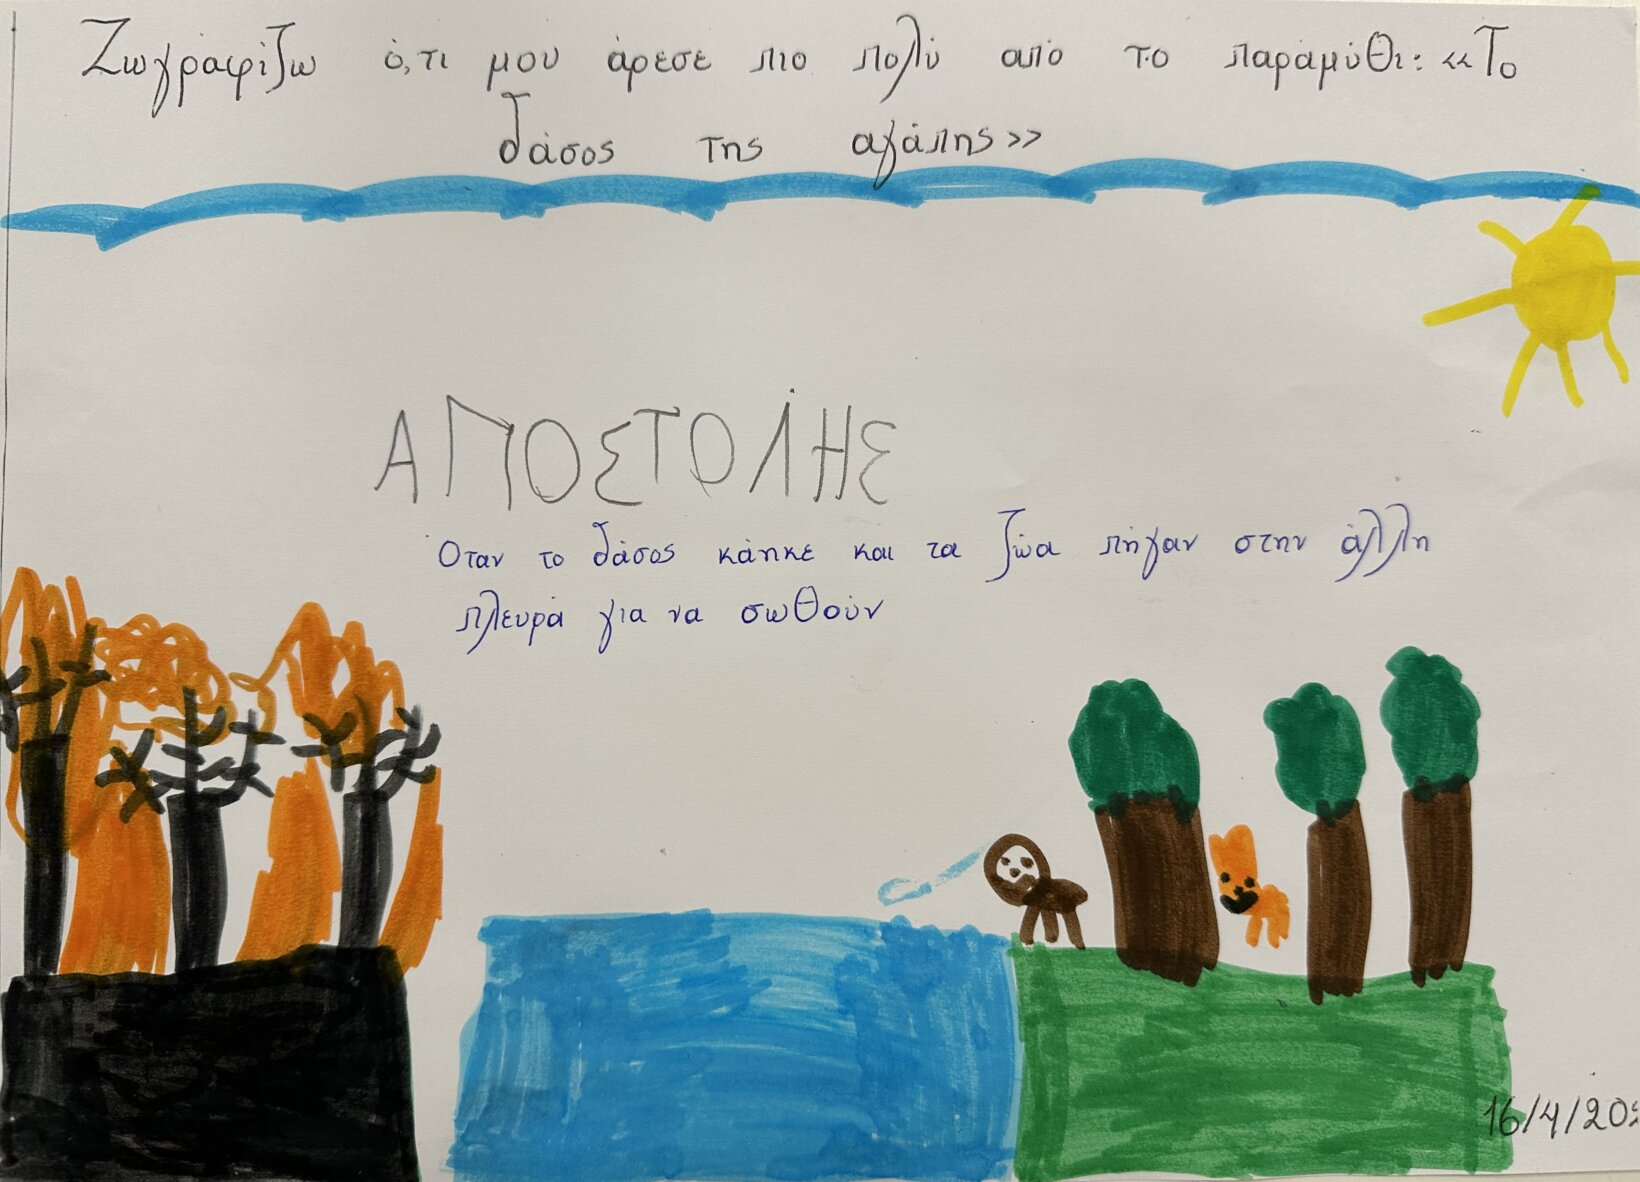 Ζωγραφίζω ό,τι μου άρεσε πιο πολύ από το παραμύθι: «Το
δάσος της αγάπης»
ΑΠΟΣΤΟΛΗΣ
Όταν το δάσος κάηκε και τα ζώα πήγαν στην άλλη
πλευρά για να σωθούν
16/4/202